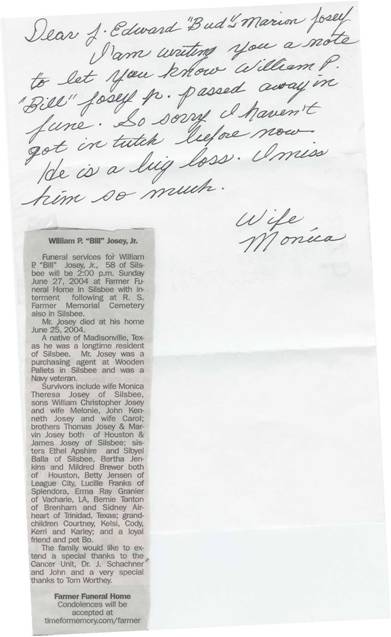 Dear J. Edward "Bud" & Marion Josey
I'am writing you a note
to let you know William P.
"Bill" Josey Jr. passed away in
June. So sorry I haven't
got in tutch before now.
He is a big loss. I miss
him so much.
Wife
Monica
William P. "Bill" Josey, Jr.
Funeral services for William
P. "Bill" Josey, Jr., 58 of Sils-
bee will be 2:00 p.m. Sunday
June 27, 2004 at Farmer Fu-
neral Home in Silsbee with in-
terment following at R. S.
Farmer Memorial Cemetery
also in Silsbee.
Mr. Josey died at his home
June 25, 2004.
A native of Madisonville, Tex-
as he was a longtime resident
of Silsbee. Mr. Josey was a
purchasing agent at Wooden
Pallets in Silsbee and was a
Navy veteran.
Survivors include wife Monica
Theresa Josey of Silsbee,
sons William Christopher Josey
and wife Melonie, John Ken-
neth Josey and wife Carol;
brothers Thomas Josey & Mar-
vin Josey both of Houston &
James Josey of Silsbee; sis-
ters Ethel Apshire and Sibyel
Balla of Silsbee, Bertha Jen-
kins and Mildred Brewer both
of Houston, Betty Jensen of
League City, Lucille Franks of
Splendora, Erma Ray Granier
of Vacharie, LA, Bernie Tanton
of Brenham and Sidney Air-
heart of Trinidad, Texas; grand-
children Courtney, Kelsi, Cody,
Kerri and Karley; and a loyal
friend and pet Bo.
The family would like to ex-
tend a special thanks to the
Cancer Unit, Dr. J. Schachner
and John and a very special
thanks to Tom Worthey.
Farmer Funeral Home
Condolences will be
accepted at
timeformemory.com/farmer